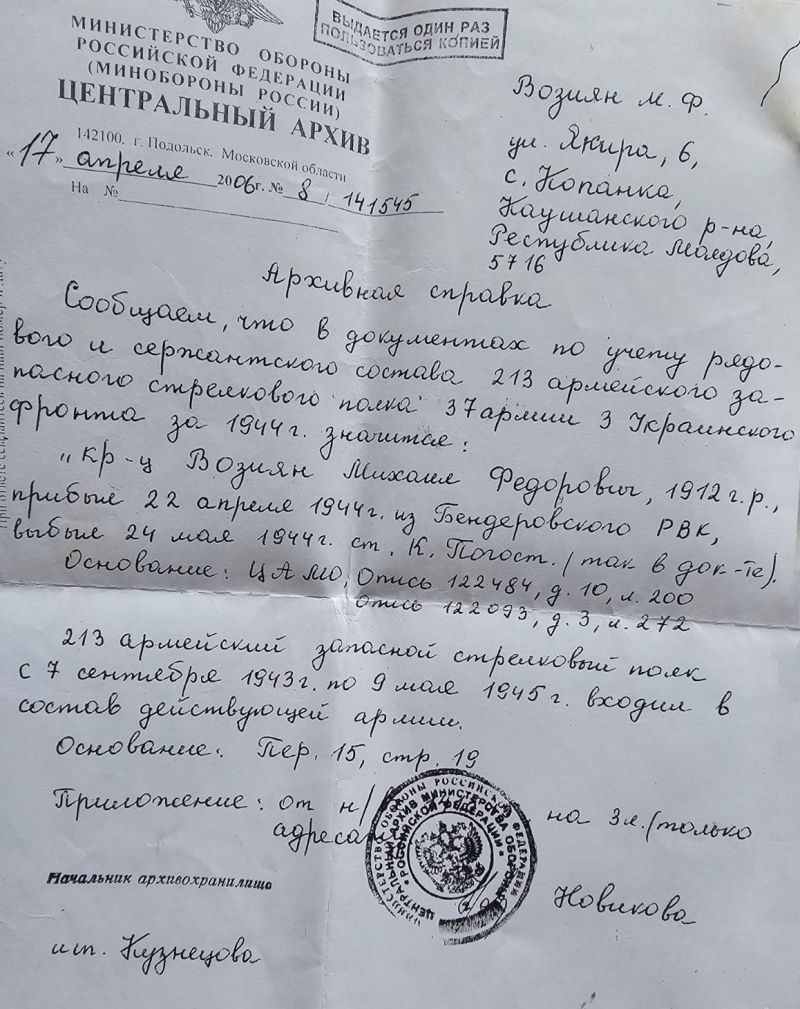 ВЫДАЕТСЯ ОДИН РАЗ
ПОЛЬЗОВАТЬСЯ КОПИЕЙ
МИНИСТЕРСТВО ОБОРОНЫ
РОССИЙСКОЙ ФЕДЕРАЦИИ
(МИНОБОРОНЫ РОССИИ)
ЦЕНТРАЛЬНЫЙ АРХИВ
142100. г. Подольск. Московской области
«17» апреля 2006 г. № 8 / 141545
На №
Возиян М. Ф.
ул. Якира, 6,
с. Копанка,
Каушанского р-на,
Республика Молдова,
5716
Архивная справка
Сообщаем, что в документах по учету рядо-
вого и сержантского состава 213 армейского за-
пасного стрелкового полка 37 армии 3 Украинского
фронта за 1944 г. значится:
„кр-ц Возиян Михаил Федорович, 1912 г.р.,
прибыл 22 апреля 1944г. из Бендеровского РВК,
выбыл 24 мая 1944г. ст. К. Погост. /так в док-те).
Основание: ЦАМО, Опись 122484, д. 10, л. 200
Опись 122093, д. 3, л. 272
213 армейский запасной стрелковый полк
с 7 сентября 1943г. по 9 мая 1945г. входил в
состав действующей армии.
Основание: Пер. 15, стр. 19
Приложение: от н/ на 3л. /только
адресат
МИНИСТЕРСТВО ОБОРОНЫ РОССИЙСКОЙ ФЕДЕРАЦИИ
ЦЕНТРАЛЬНЫЙ АРХИВ МИНИСТЕРСТВА ОБОРОНЫ
РОССИЙСКОЙ ФЕДЕРАЦИИ
Начальник архивохранилища Новикова
исп. Кузнецова